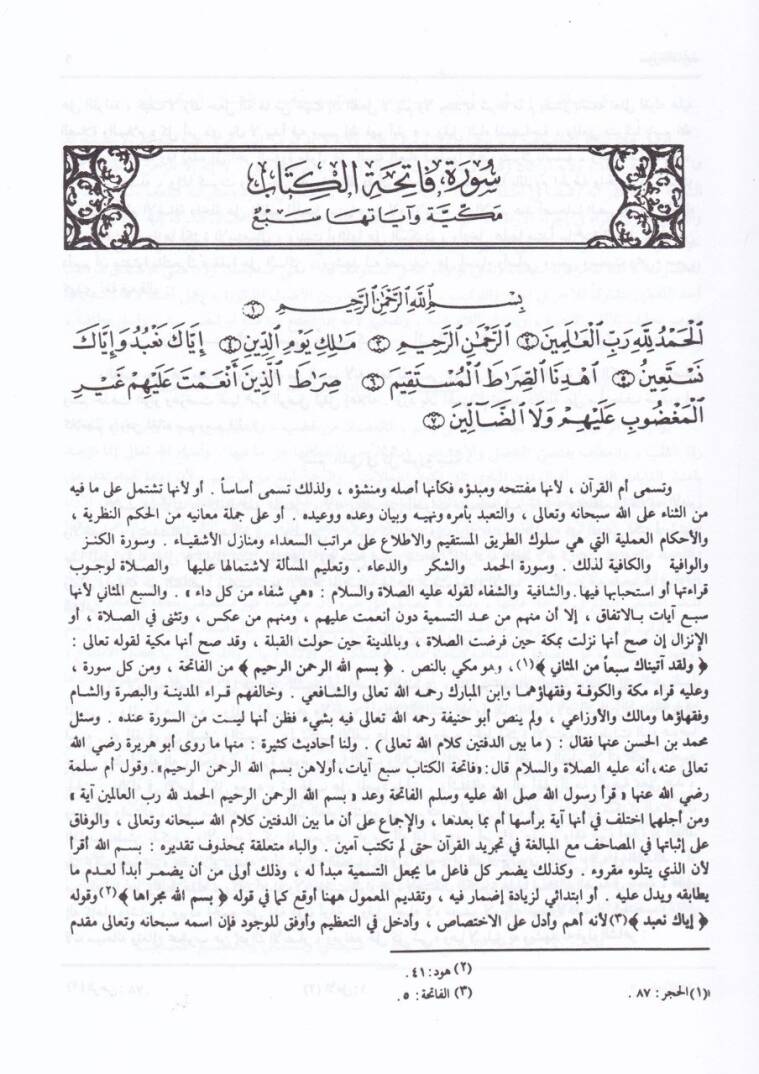 سورة فاتحة الكتاب
مكية وآياتها سبع
بِسْمِ اللَّهِ الرَّحْمَٰنِ الرَّحِيمِ ١
الْحَمْدُ لِلَّهِ رَبِّ الْعَالَمِينَ ٢ الرَّحْمَٰنِ الرَّحِيمِ ٣ مَالِكِ يَوْمِ الدِّينِ ٤ إِيَّاكَ نَعْبُدُ وَإِيَّاكَ
نَسْتَعِينُ ٥ اهْدِنَا الصِّرَاطَ الْمُسْتَقِيمَ ٦ صِرَاطَ الَّذِينَ أَنْعَمْتَ عَلَيْهِمْ غَيْرِ
الْمَغْضُوبِ عَلَيْهِمْ وَلَا الضَّالِّينَ ٧
وتسمى أم القرآن ، لأنها مفتتحه ومبدؤه فكأنها أصله ومنشؤه ، ولذلك تسمى أساساً . أو لأنها تشتمل على ما فيه
من الثناء على الله سبحانه وتعالى ، والتعبد بأمره ونهيه وبيان وعده ووعيده . أو على جملة معانيه من الحكم النظرية ،
والأحكام العملية التي هي سلوك الطريق المستقيم والاطلاع على مراتب السعداء ومنازل الأشقياء . وسورة الكنـز
والوافية والكافية لذلك . وسورة الحمد والشكر والدعاء . وتعليم المسألة لاشتمالها عليها والصلاة لوجوب
قراءتها أو استحبابها فيها. والشافية والشفاء لقوله عليه الصلاة والسلام : «هي شفاء من كل داء» . والسبع المثاني لأنها
سبع آيات بالاتفاق ، إلا أن منهم من عد التسمية دون أنعمت عليهم ، ومنهم من عكس ، وتثنى في الصلاة ، أو
الإنزال إن صح أنها نزلت بمكة حين فرضت الصلاة ، وبالمدينة حين حولت القبلة ، وقد صح أنها مكية لقوله تعالى :
﴿ ولقد آتيناك سبعاً من المثاني ﴾(١)، وهو مكي بالنص . ﴿ بسم الله الرحمن الرحيم ﴾ من الفاتحة ، ومن كل سورة ،
وعليه قراء مكة والكوفة وفقهاؤهما وابن المبارك رحمه الله تعالى والشافعي . وخالفهم قراء المدينة والبصرة والشام
وفقهاؤها ومالك والأوزاعي ، ولم ينص أبو حنيفة رحمه الله تعالى فيه بشيء فظن أنها ليست من السورة عنده . وسئل
محمد بن الحسن عنها فقال : ( ما بين الدفتين كلام الله تعالى ) . ولنا أحاديث كثيرة : منها ما روى أبو هريرة رضي الله
تعالى عنه، أنه عليه الصلاة والسلام قال: «فاتحة الكتاب سبع آيات، أولاهن بسم الله الرحمن الرحيم». وقول أم سلمة
رضي الله عنها « قرأ رسول الله صلى الله عليه وسلم الفاتحة وعد « بسم الله الرحمن الرحيم الحمد لله رب العالمين آية »
ومن أجلهما اختلف في أنها آية برأسها أم بما بعدها ، والإجماع على أن ما بين الدفتين كلام الله سبحانه وتعالى ، والوفاق
على إثباتها في المصاحف مع المبالغة في تجريد القرآن حتى لم تكتب آمين . والباء متعلقة بمحذوف تقديره : بسم الله أقرأ
لأن الذي يتلوه مقروء . وكذلك يضمر كل فاعل ما يجعل التسمية مبدأ له ، وذلك أولى من أن يضمر أبدأ لعدم ما
يطابقه ويدل عليه . أو ابتدائي لزيادة إضمار فيه ، وتقديم المعمول ههنا أوقع كما في قوله ﴿ بسم الله مجراها ﴾(٢) وقوله
﴿ إياك نعبد ﴾(٣) لأنه أهم وأدل على الاختصاص ، وأدخل في التعظيم وأوفق للوجود فإن اسمه سبحانه وتعالى مقدم
(١) الحجر : ٨٧ .
(٢) هود : ٤١ .
(٣) الفاتحة : ٥ .